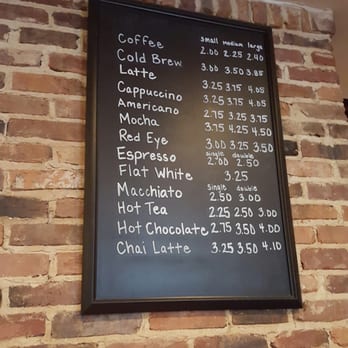 small medium large
Coffee 2.00 2.25 2.40
Cold Brew 3.00 3.50 3.85
Latte 3.25 3.75 4.05
Cappuccino 3.25 3.75 4.05
Americano 2.75 3.25 3.75
Mocha 3.75 4.25 4.50
Red Eye 3.00 3.25 3.50
single double
Espresso 2.00 2.50
Flat White 3.25
single double
Macchiato 2.50 3.00
Hot Tea 2.25 2.50 3.00
Hot Chocolate 2.75 3.50 4.00
Chai Latte 3.25 3.50 4.10